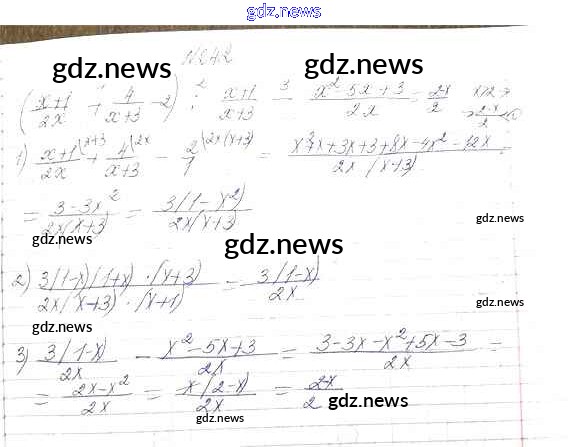 gdz.news
№242
gdz.news gdz.news
(x+1/2x + 4/x+3 - 2) : x+1/x+3 - x²-5x+3/2x = 2-x/2
1) x+1/2x + 4/x+3 - 2/1 =
gdz.news
= 3-3x²/2x(x+3) = 3(1-x²)/2x(x+3)
gdz.news gdz.news
2) 3(1-x)(1+x)·(x+3)/2x(x+3)·(x+1) = 3(1-x)/2x
gdz.news
gdz.news
3) 3(1-x)/2x - x²-5x+3/2x = 3-3x-x²+5x-3/2x =
= 2x-x²/2x = x(2-x)/2x = 2-x/2
gdz.news
gdz.news